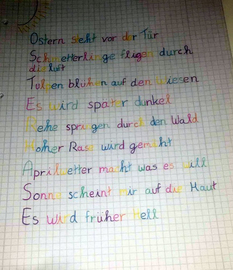 Ostern steht vor der Tür
Schmetterlinge fligen durch
die luft
Tulpen blühen auf den wiesen
Es wird spater dunkel
Rehe springen durch den Wald
Hoher Rasen wurd gemäht
Aprilwetter macht was es will
Sonne scheint mir auf die Haut
Es wurd früher hell